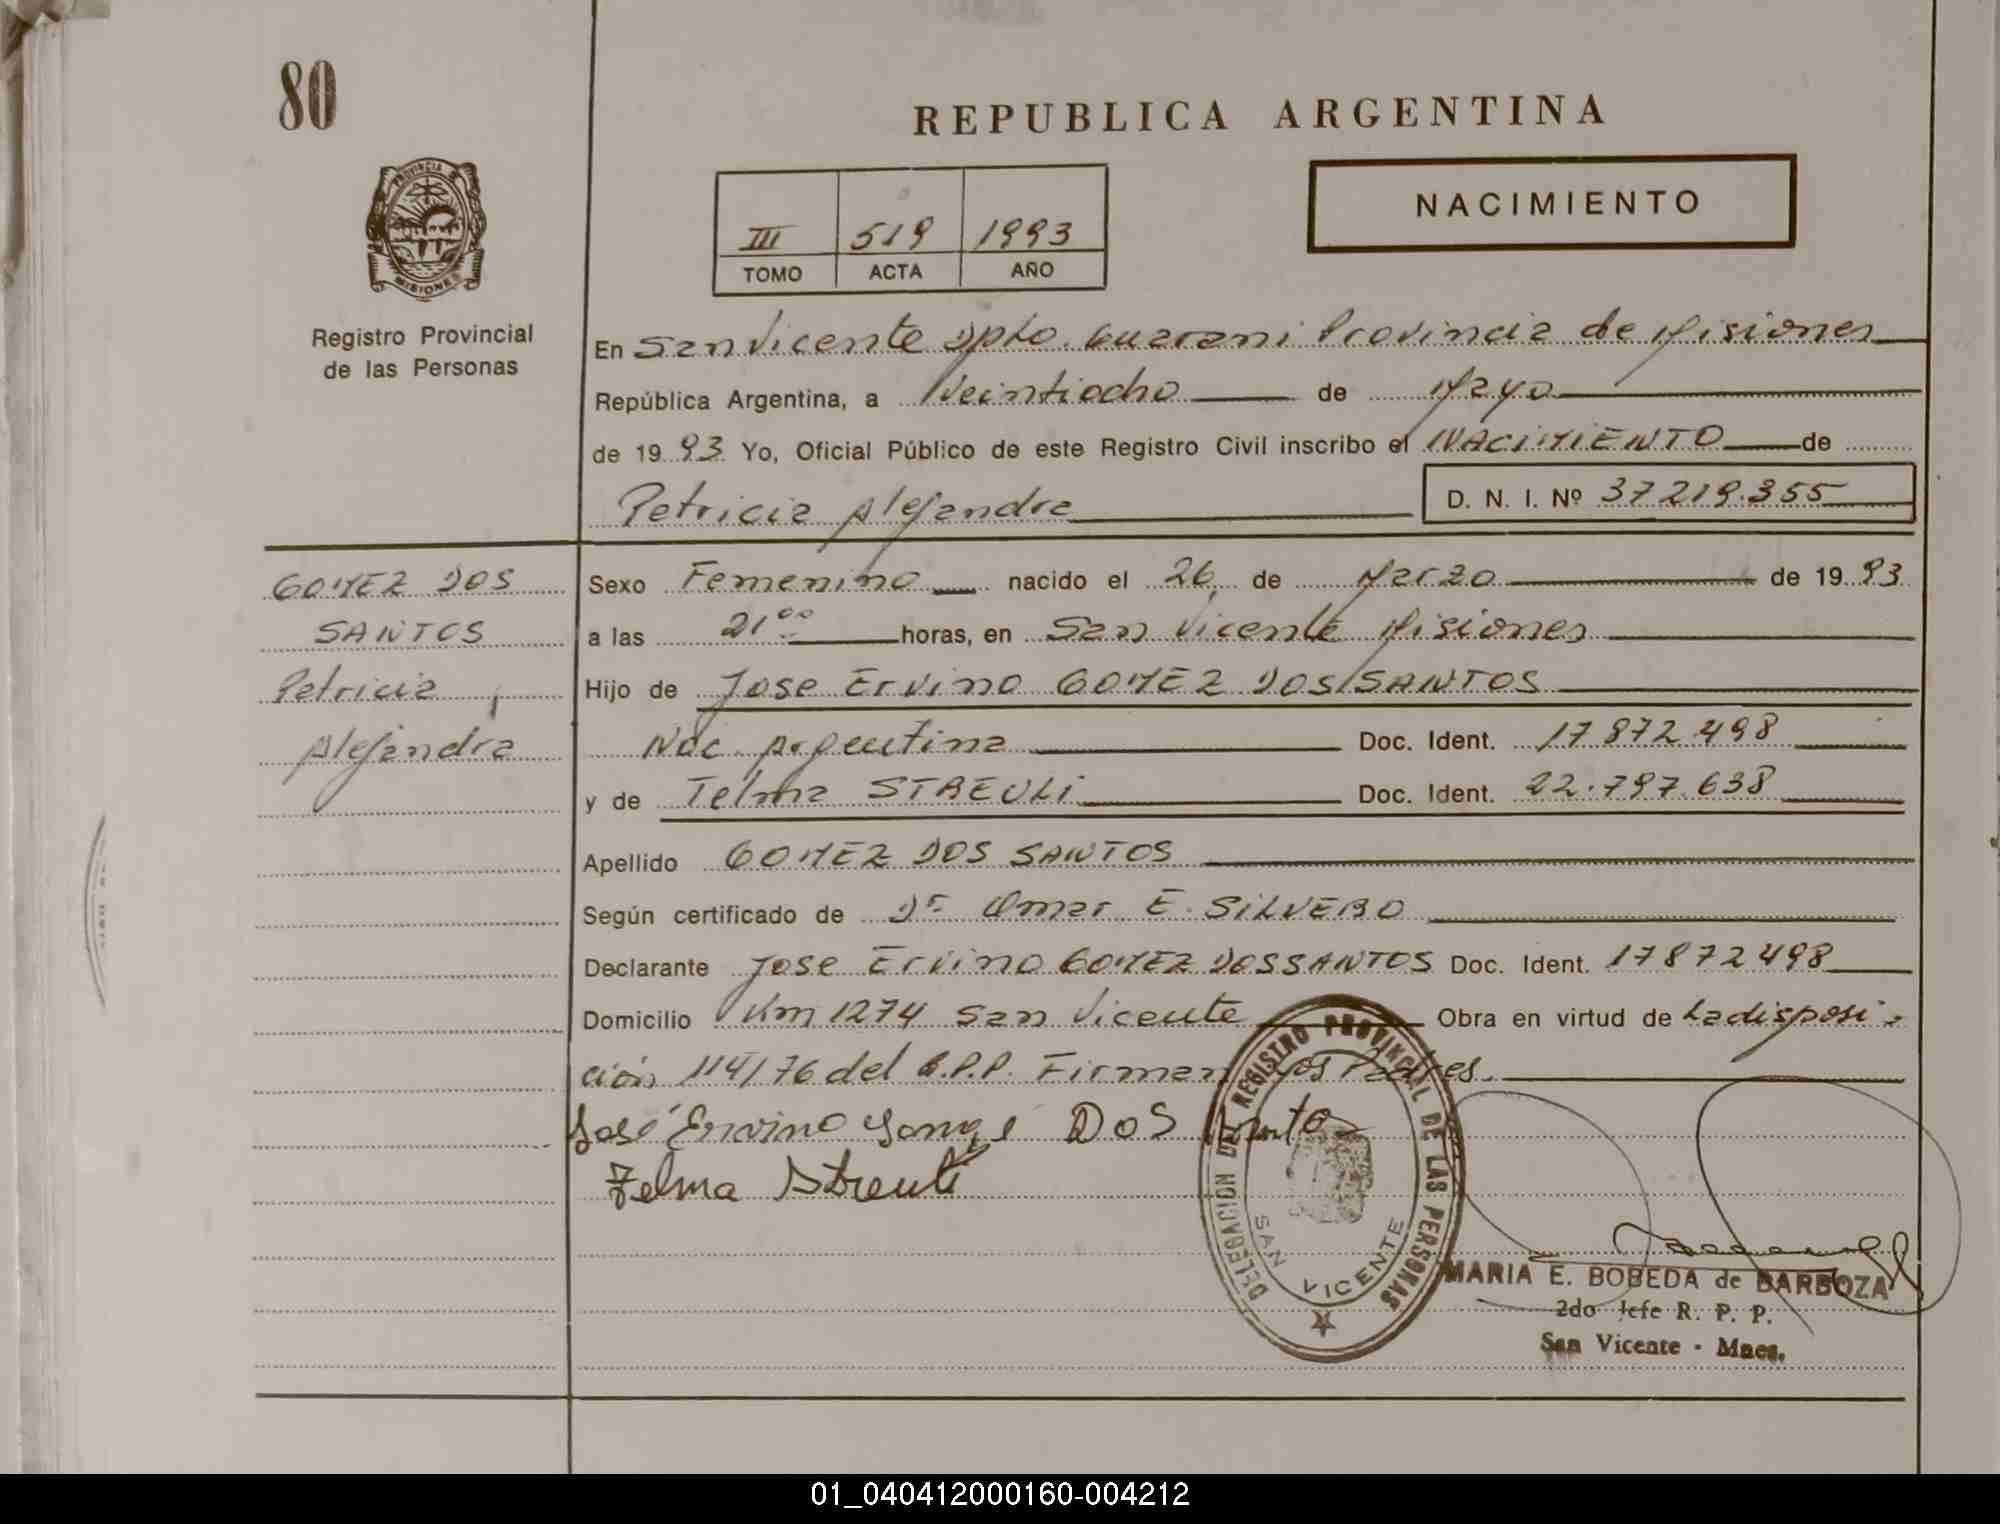 80
REPUBLICA ARGENTINA
PROVINCIA DE
MISIONES
Registro Provincial
de las Personas
III 519 1993
TOMO ACTA AÑO
NACIMIENTO
En San Vicente Dpto. Guarani Provincia de Misiones
República Argentina, a Veintiocho de Mayo
de 1993 Yo, Oficial Público de este Registro Civil inscribo el NACIMIENTO de
Patricia Alejandra D. N. I. Nº 37219.355
GOMEZ DOS
SANTOS
Patricia
Alejandra
Sexo Femenino nacido el 26 de Marzo de 1993
a las 21⁰⁰ horas, en San Vicente Misiones
Hijo de Jose Ervino GOMEZ DOS SANTOS
Nac. Argentina Doc. Ident. 17872498
y de Telma STREULI Doc. Ident. 22.797.638
Apellido GOMEZ DOS SANTOS
Según certificado de Dr. Omar E. SILVERO
Declarante Jose Ervino GOMEZ DOS SANTOS Doc. Ident. 17872498
Domicilio Km 1274 San Vicente Obra en virtud de La disposi-
ción 114/76 del R.P.P. Firman los Padres.
José Ervino Gomez Dos Santos
Telma Streuli
DELEGACION DE REGISTRO PROVINCIAL DE LAS PERSONAS
SAN VICENTE
MARIA E. BOBEDA de BARBOZA
2do Jefe R. P. P.
San Vicente - Mnes.
01_040412000160-004212